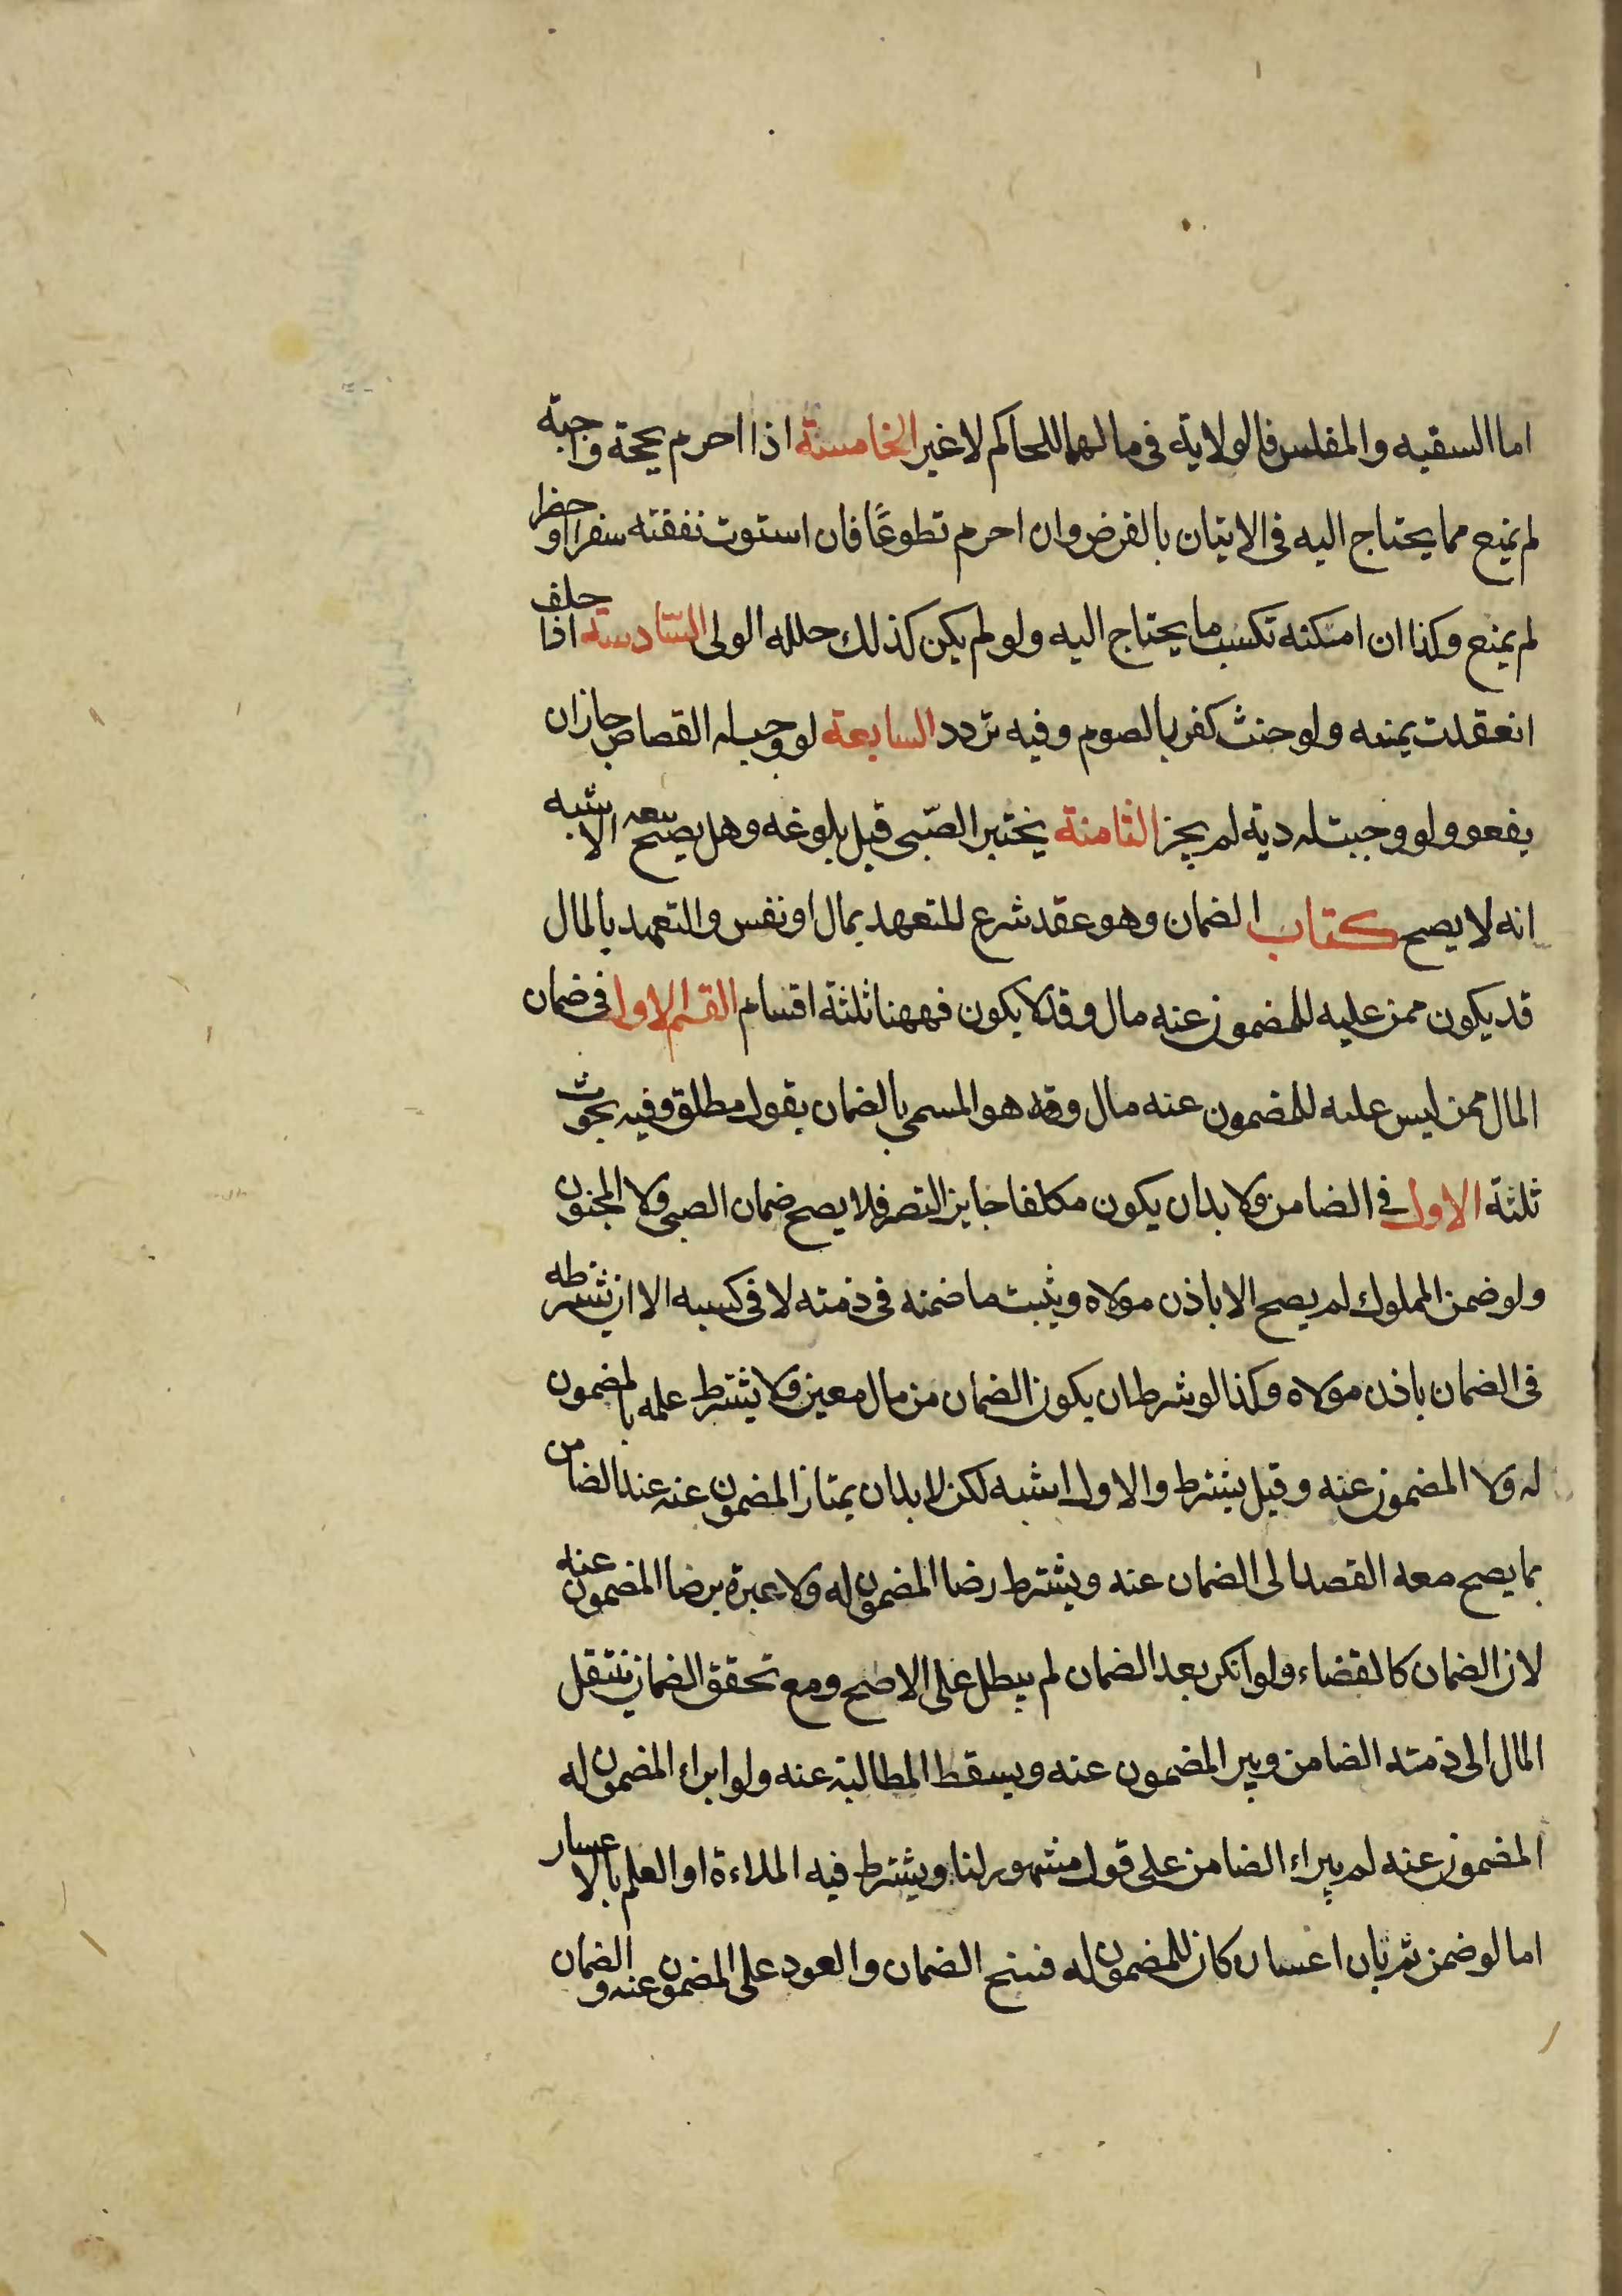 اما السفيه والمفلس فالولاية فى مالهما للحاكم لا غير الخامسة اذا احرم بحجة واجبة
لم يمنع مما يحتاج اليه فى الاتيان بالفرض وان احرم تطوعًا فان استوت نفقته سفرا وحضرا
لم يمنع وكذا ان امكنه تكسب ما يحتاج اليه ولو لم يكن كذلك حلله الولى السّادسة اذا حلف
انعقدت يمينه ولو حنث كفر بالصوم وفيه تردد السابعة لو وجب له القصاص جاز ان
يعفو ولو وجبت له دية لم يجز الثامنة يختبر الصّبى قبل بلوغه وهل يصح بيعه الاشبه
انه لا يصح كتاب الضمان وهو عقد شرع للتعهد بمال او نفس والتعهد بالمال
قد يكون ممن عليه للمضمون عنه مال وقد لا يكون فههنا ثلثة اقسام القسم الاول فى ضمان
المال ممن ليس عليه للمضمون عنه مال وهو المسمى بالضمان بقول مطلق وفيه بحوث
ثلثة الاول فى الضامن ولا بد ان يكون مكلفا جايز التصرف فلا يصح ضمان الصبى ولا المجنون
ولو ضمن المملوك لم يصح الا باذن مولاه ويثبت ما ضمنه فى ذمته لا فى كسبه الا ان يشترطه
فى الضمان باذن مولاه وكذا لو شرط ان يكون الضمان من مال معين ولا يشترط علمه بالمضمون
له ولا المضمون عنه وقيل يشترط والاول اشبه لكن لا بد ان يمتاز المضمون عنه عند الضامن
بما يصح معه القصد الى الضمان عنه ويشترط رضا المضمون له ولا عبرة برضا المضمون عنه
لان الضمان كالقضاء ولو انكر بعد الضمان لم يبطل على الاصح ومع تحقق الضمان ينتقل
المال الى ذمته الضامن ويبر المضمون عنه ويسقط المطالبة عنه ولو ابراء المضمون له
المضمون عنه لم يبراء الضامن على قول مشهور لنا ويشترط فيه الملاءة او العلم بالاعسار
اما لو ضمن ثم بان اعساره كان للمضمون له فسخ الضمان والعود على المضمون عنه والضمان